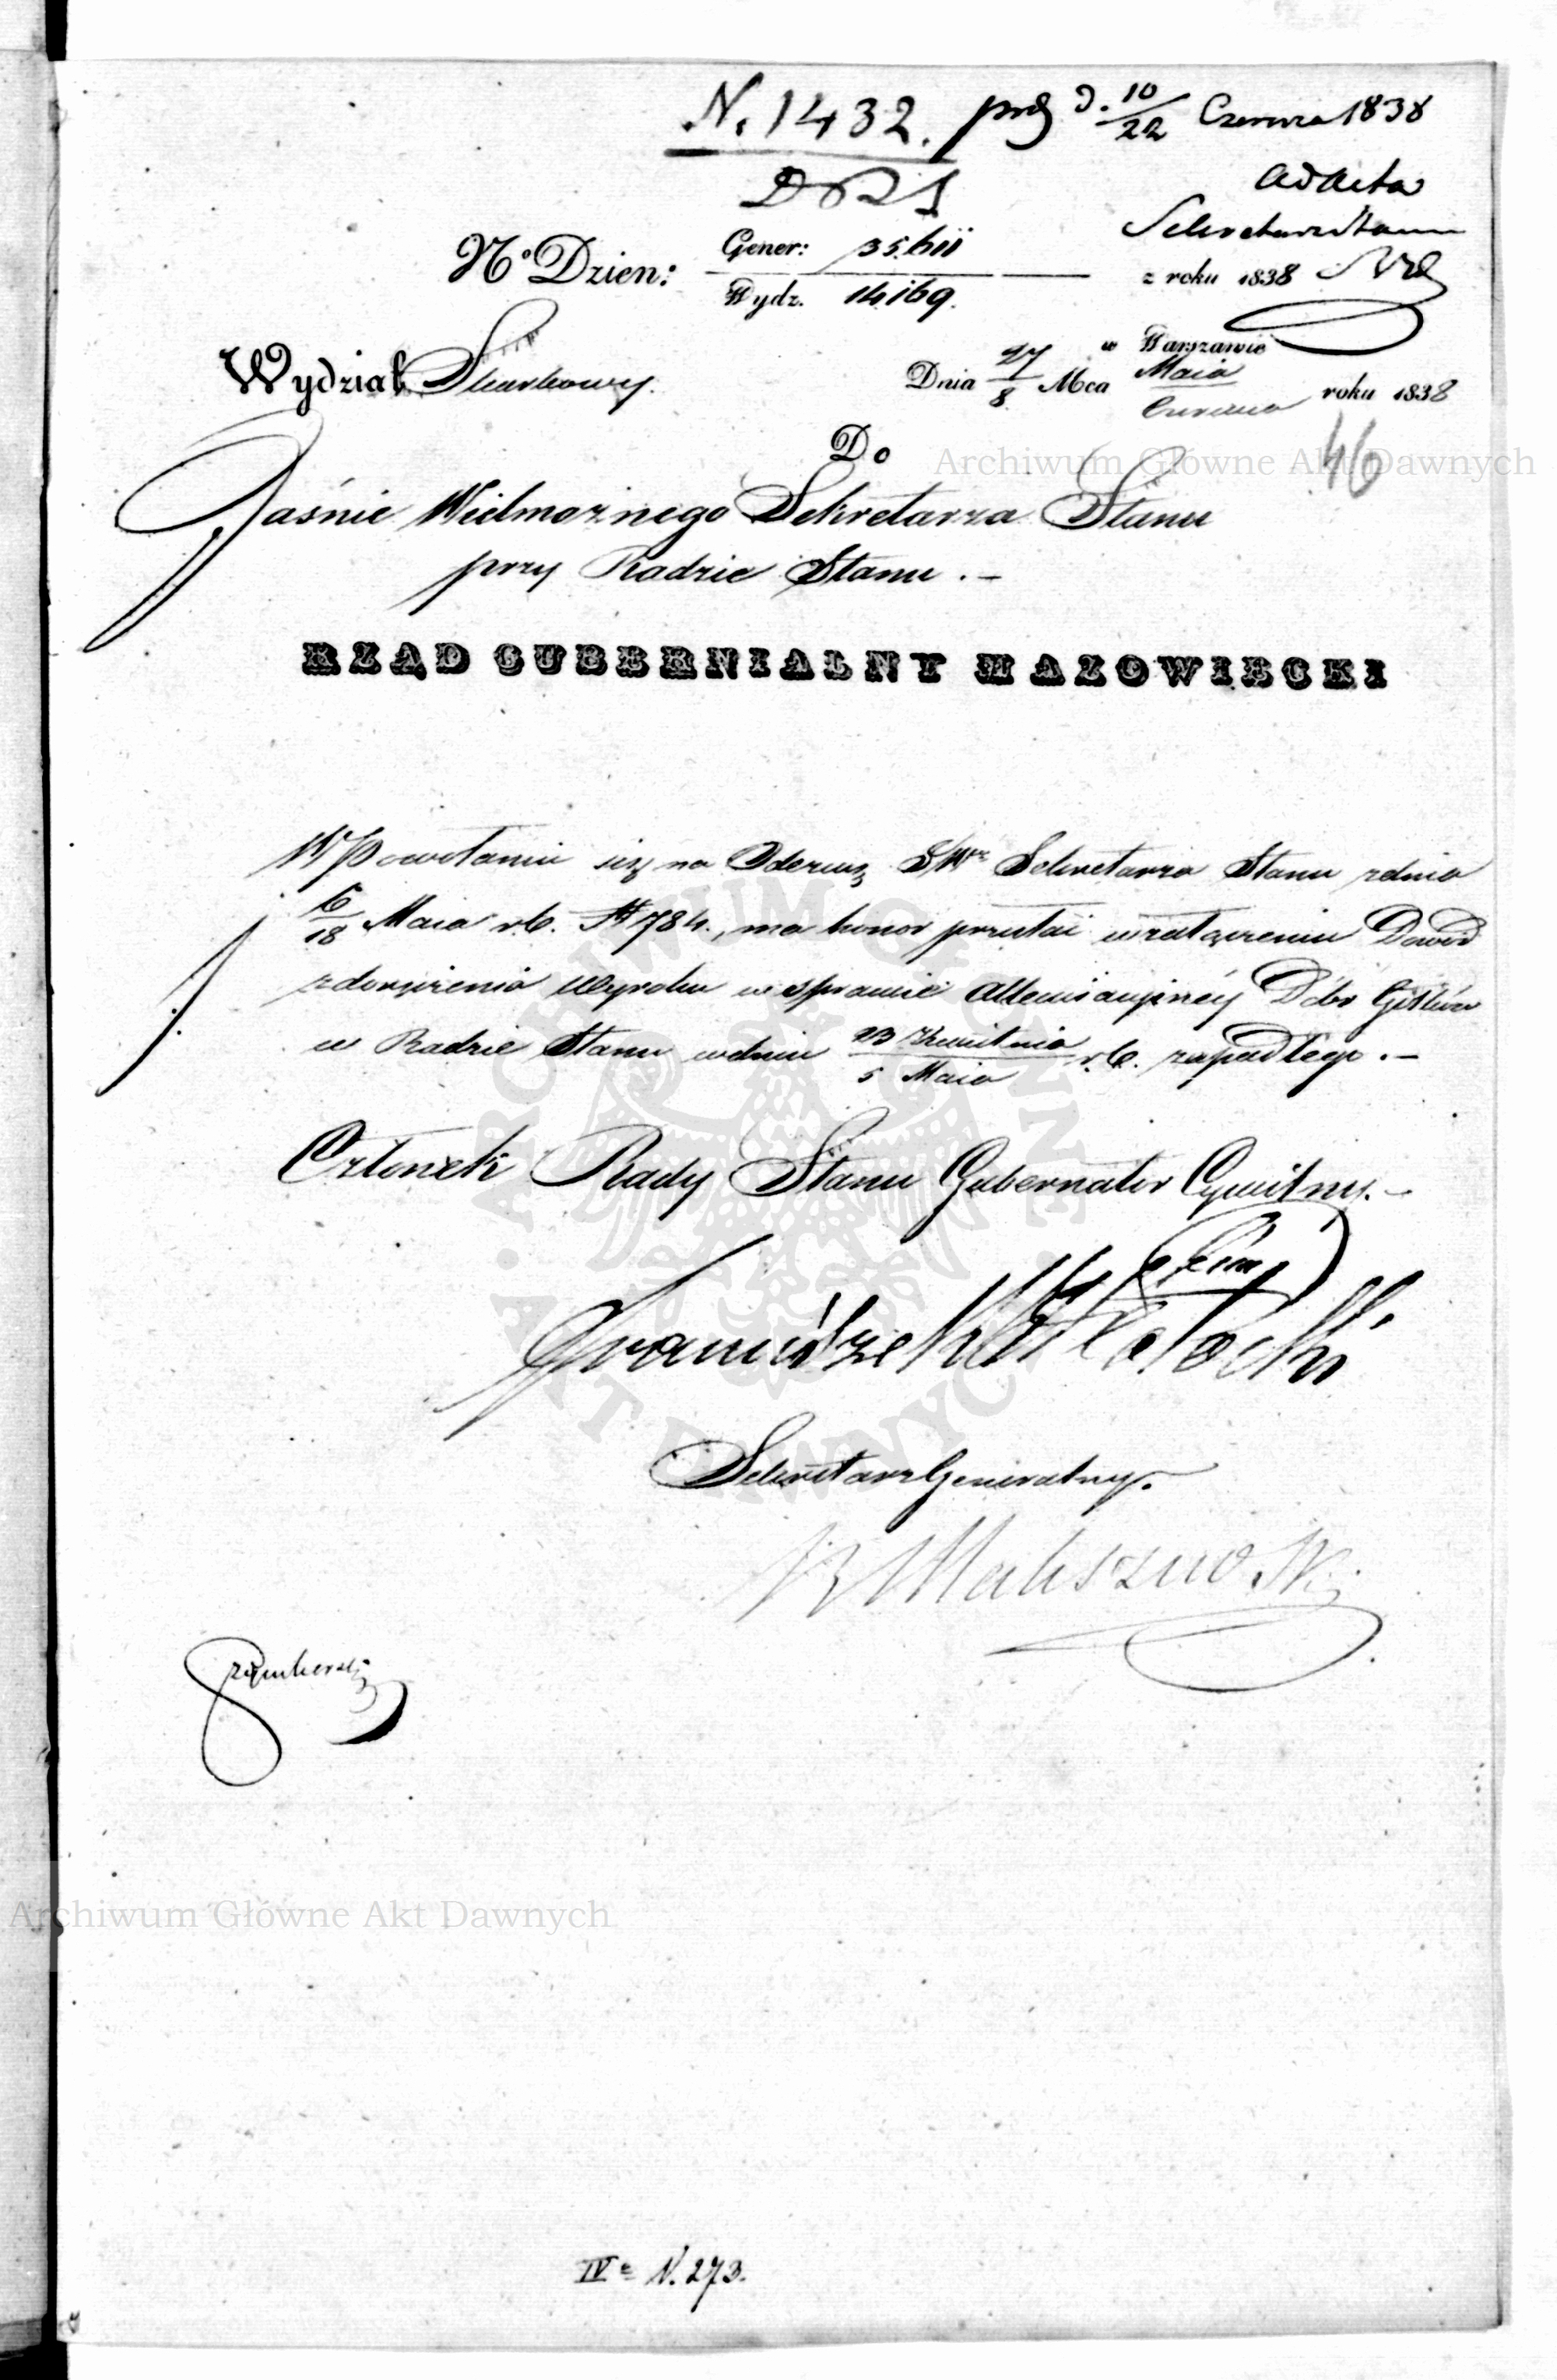 N. 1432. prd d. 10/22 Czerwca 1838
ad acta
Sekretarza Stanu
No Dzien: Gener: 35.611
Wydz. 14.169.
z roku 1838
Wydział Skarbowy.
w Warszawie
Dnia 27/8 Mca Maia/Czerwca roku 1838
46
Do
Jaśnie Wielmożnego Sekretarza Stanu
przy Radzie Stanu. -
RZĄD GUBERNIALNY MAZOWIECKI
W Powołaniu się na Odezwę JW Sekretarza Stanu z dnia
6/18 Maia r.b. N 784., ma honor przesłać w załączeniu Dowód
z doręczenia Wyroku w sprawie Dóbr
w Radzie Stanu w dniu 23 Kwietnia/5 Maia r.b. zapadłego. -
Członek Rady Stanu Gubernator Cywilny. -
Franciszek Potocki
Sekretarz Generalny.
IV N. 273.
Archiwum Główne Akt Dawnych
Archiwum Główne Akt Dawnych
ARCHIWUM GŁÓWNE
AKT DAWNYCH